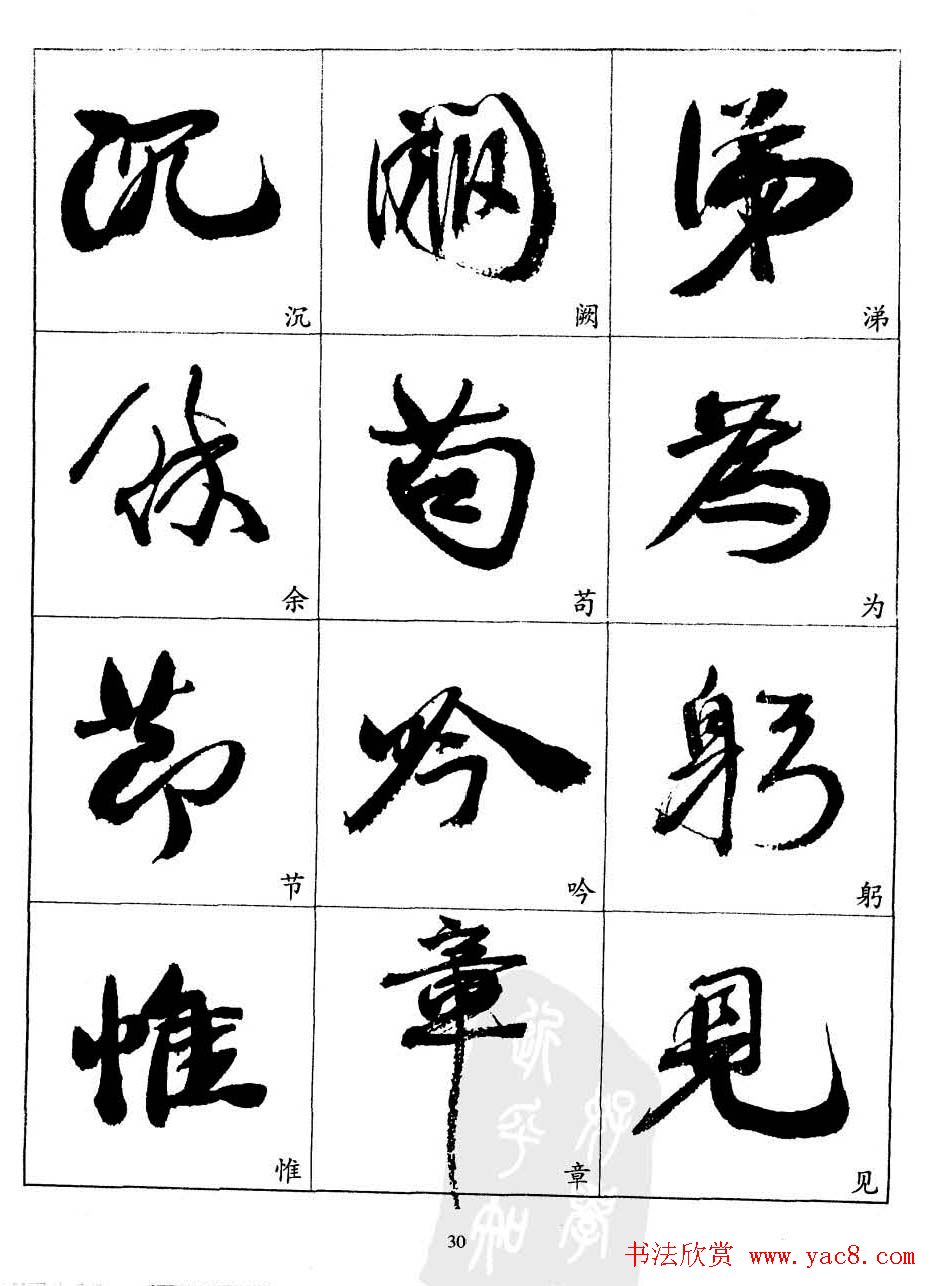 沉 阙 涕
余 苟 为
节 吟 躬
惟 章 见
30
书法欣赏 www.yac8.com